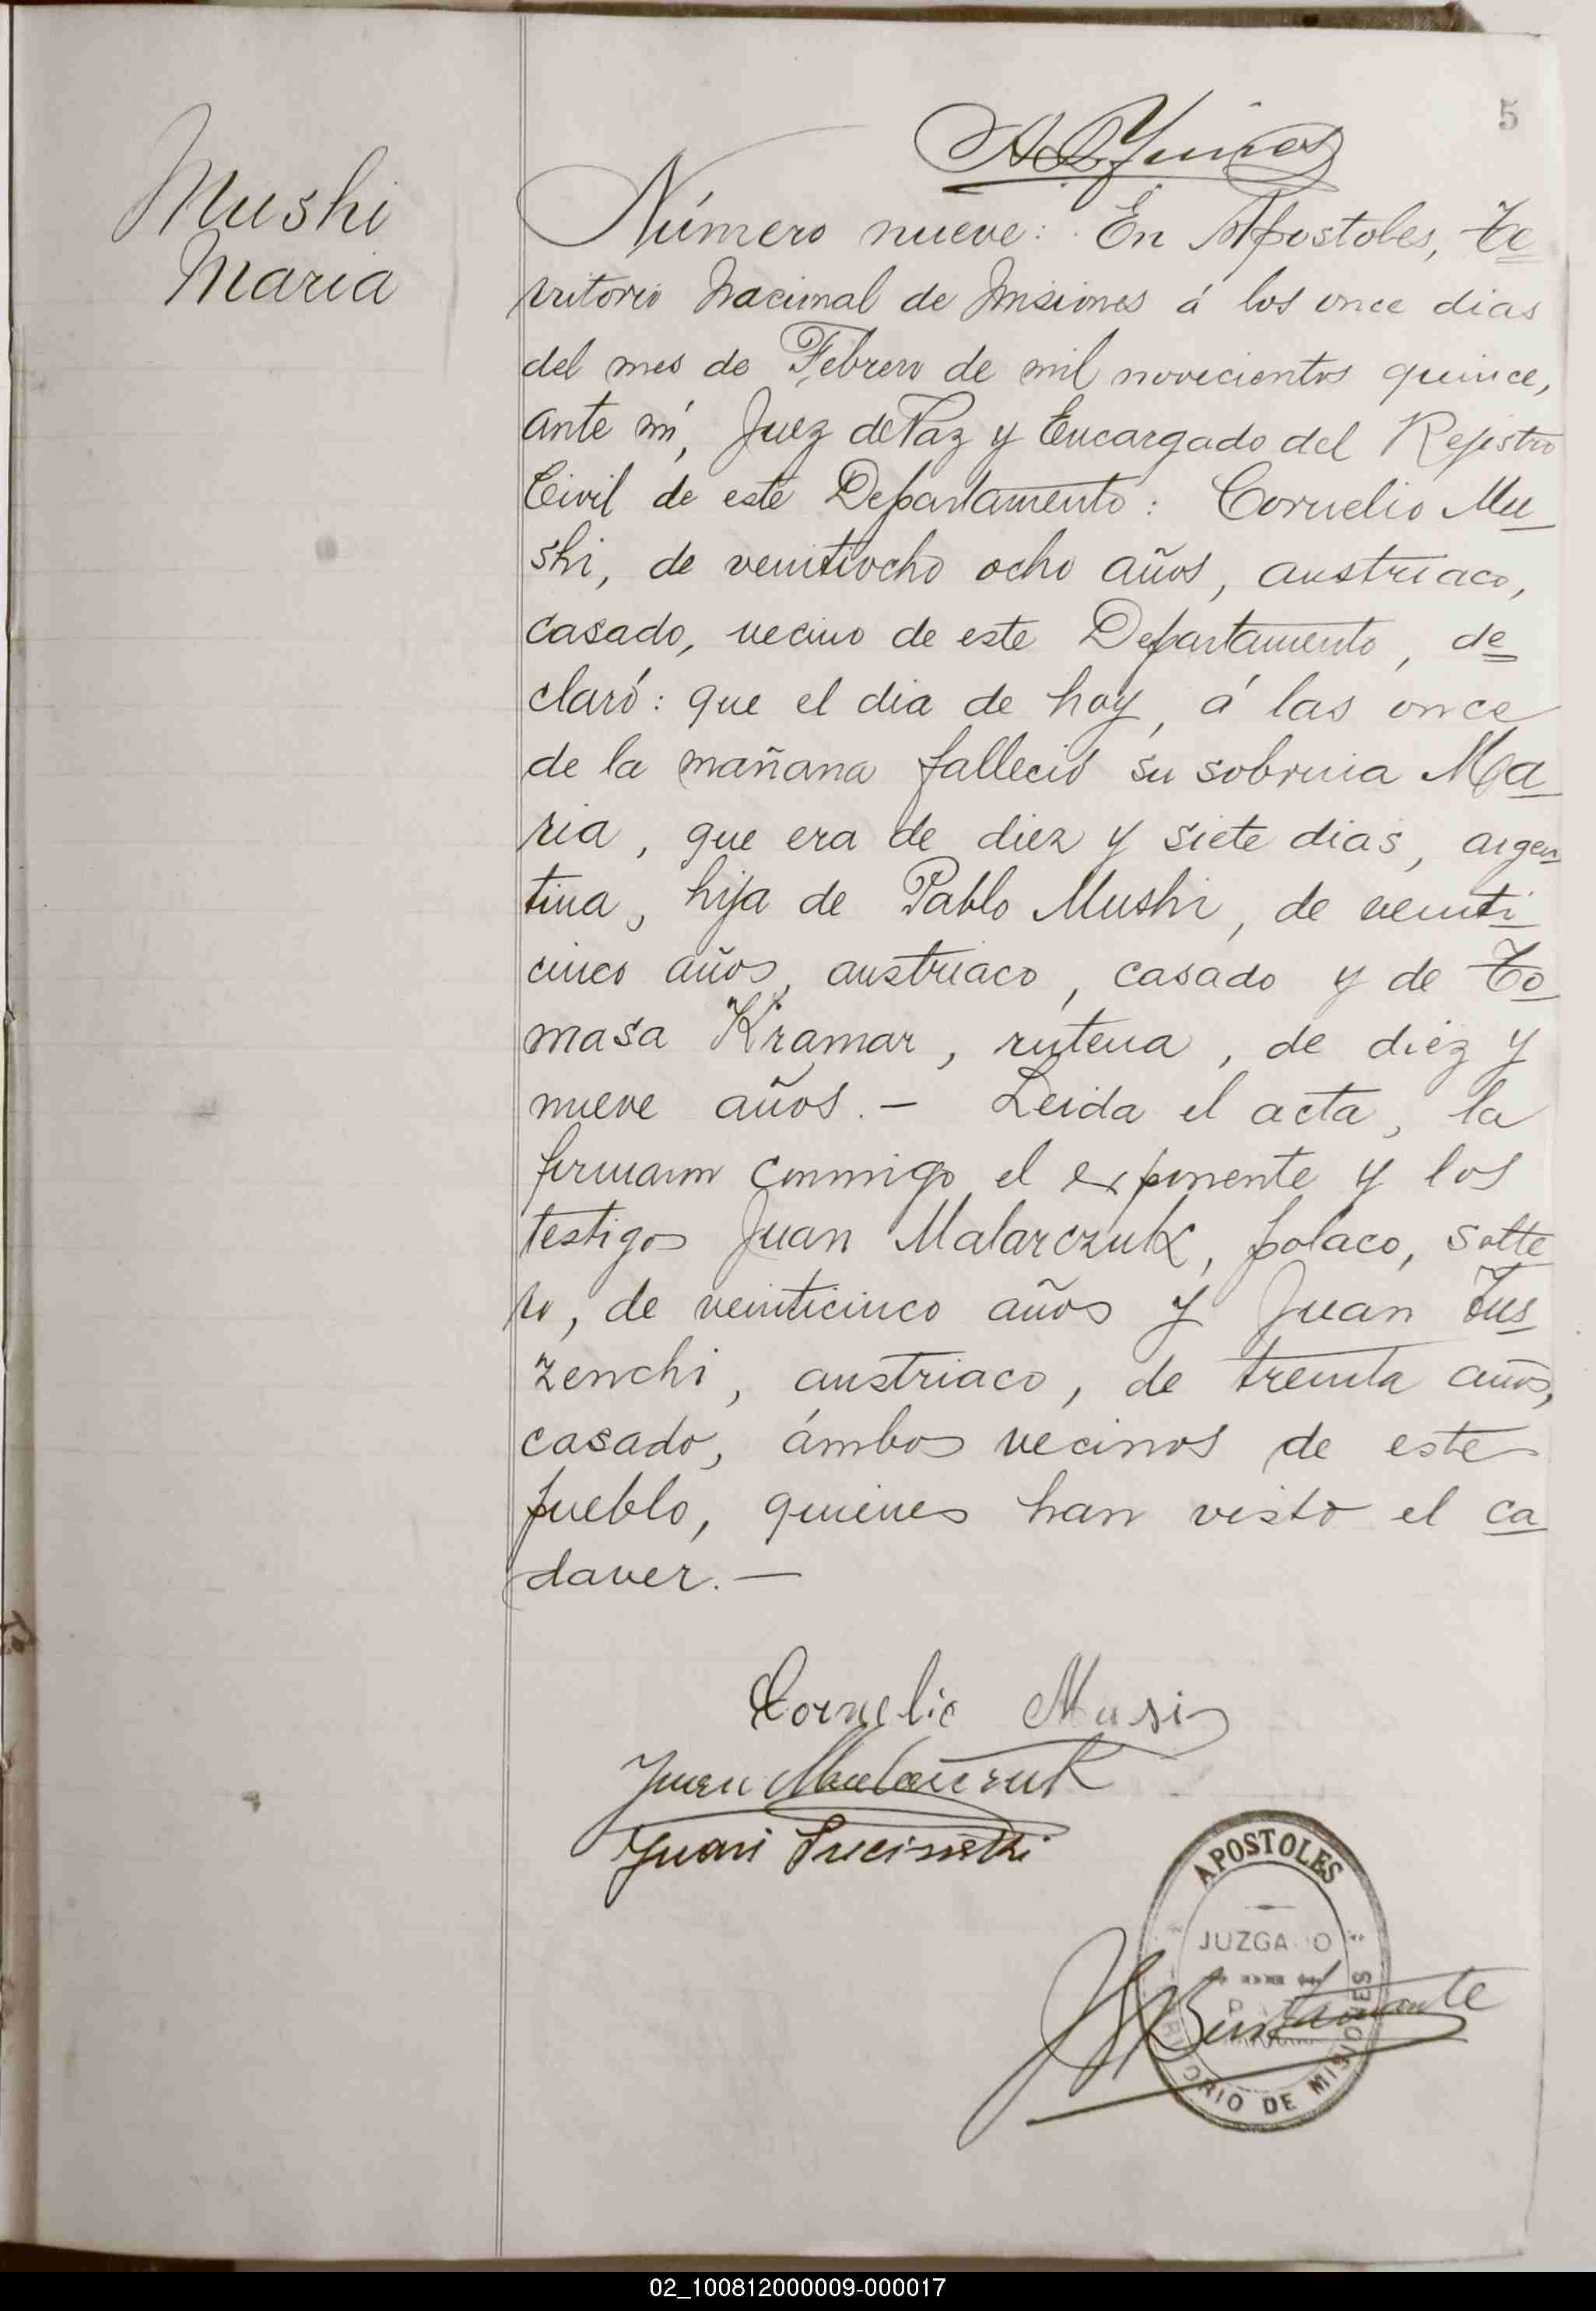 5
Mushi
Maria
Número nueve: En Apostoles, Te
rritorio Nacional de Misiones á los once dias
del mes de Febrero de mil novecientos quince,
ante mí, Juez de Paz y Encargado del Rejistro
Civil de este Departamento: Cornelio Mu
shi, de venitiocho ocho años, austriaco,
casado, vecino de este Departamento, de
claró: que el dia de hoy, á las once
de la mañana falleció su sobrina Ma
ria, que era de diez y siete dias, argen
tina, hija de Pablo Mushi, de veinti
cinco años, austriaco, casado y de To
masa Kramar, rutena, de diez y
nueve años.— Leida el acta, la
firmaron conmigo el exponente y los
testigos Juan Malarczuk, polaco, solte
ro, de veinticinco años y Juan Tus
zenchi, austriaco, de treinta años,
casado, ámbos vecinos de este
pueblo, quienes han visto el ca
daver.—
Cornelio Musi
Juan Malarczuk
Juan
APOSTOLES
JUZGADO
Bustamante
TERRITORIO DE MISIONES
02_100812000009-000017